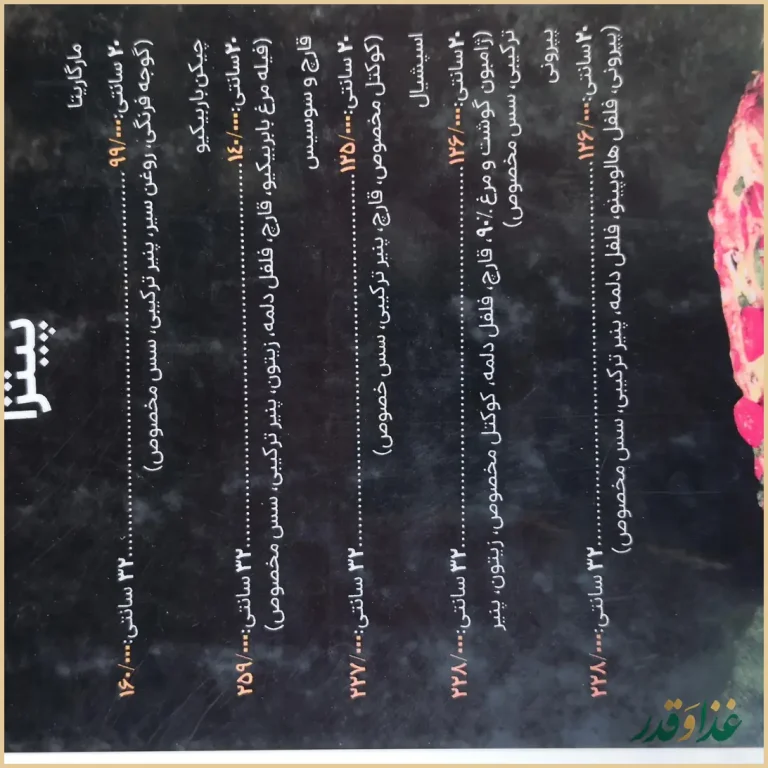 پیتزا
مارگاریتا
۲۰ سانتی:۹۹/۰۰۰ ........ ۳۲ سانتی:۱۶۰/۰۰۰
(گوجه فرنگی، روغن سیر، پنیر ترکیبی، سس مخصوص)
چیکن باربیکیو
۲۰سانتی:۱۴۰/۰۰۰ ........ ۳۲ سانتی:۲۵۹/۰۰۰
(فیله مرغ باربیکیو، قارچ، فلفل دلمه، زیتون، پنیر ترکیبی، سس مخصوص)
قارچ و سوسیس
۲۰ سانتی:۱۲۵/۰۰۰ ........ ۳۲ سانتی:۲۲۷/۰۰۰
(کوکتل مخصوص، قارچ، پنیر ترکیبی، سس خصوص)
اسپشیال
۲۰سانتی:۱۲۶/۰۰۰ ........ ۳۲ سانتی:۲۲۸/۰۰۰
(ژامبون گوشت و مرغ ۹۰٪، قارچ، فلفل دلمه، کوکتل مخصوص، زیتون، پنیر
ترکیبی، سس مخصوص)
پپرونی
۲۰سانتی:۱۲۶/۰۰۰ ........ ۳۲ سانتی:۲۲۸/۰۰۰
(پپرونی، فلفل هالوپینو، فلفل دلمه، پنیر ترکیبی، سس مخصوص)
غذا و قدر